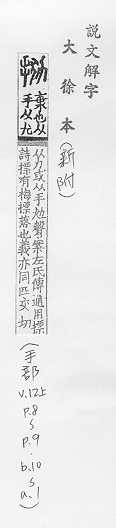 說文解字
大徐本(新附)
棄也从
手从尤
从力或从手尥聲案左氏傳通用摽
詩摽有梅摽落也義亦同匹交切
(手部
v.12上
p.8
~
p.9.
b.10
~
a.1)